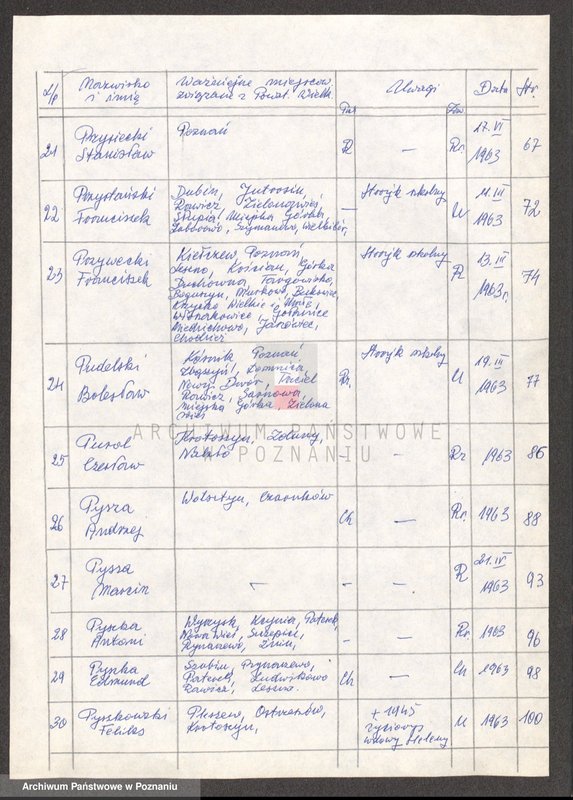 L/p Nazwisko i imię Ważniejsze miejscow. związane z Powst. Wielk. Uwagi Data Str.
21 Przysiecki Stanisław Poznań R — Rr 27.VI 1963 67
22 Przystański Franciszek
Dubin, Jutrosin,
Rawicz, Zielonawieś,
Słupia, Miejska Górka,
Szymanowo, Wielkibór,
— Hoovjk szkolny U 11.III 1963 72
23 Przywecki Franciszek
Kiełczew, Poznań
Leszno, Kościan, Górka
Duchowna, Targowisko,
Boguszyn, Murkowo, Bukowiec,
Krzycko Wielkie i Małe,
Włoszakowice, Gołanice
Niedźwiechowo, Janowiec,
Chodzież
szkolny R 13.III 1963r. 74
24 Pudelski Bolesław
Kórnik Poznań
Zbąszyń, Łomnica,
Nowy Dwór, Trzciel
Rawicz, Sarnowa,
Miejska Górka, Zielona
Wieś
Rr. szkolny U 19.III 1963 77
25 Pural Czesław
Krotoszyn, Zduny,
Nakło
— — Rr 1963 86
26 Pysza Andrzej Wolsztyn, Czarnków Ch — Rr. 1963 88
27 Pysza Marcin — — — R 21.IV 1963 93
28 Pyszka Antoni
Wyrzysk, Kcynia,
Nowa Wieś,
Rynarzewo, Żnin,
— — Rr 1963 96
29 Pyszka Edmund
Szubin, Rynarzewo,
Ludwikowo
Rawicz, Leszno.
Ch — Ch 1963 98
30 Pyszkowski Feliks
Pleszew, Ostrzeszów,
Krotoszyn,
+ 1945
życiorys
wdowy Heleny
U 1963 100
ARCHIWUM PAŃSTWOWE
W POZNANIU
Archiwum Państwowe w Poznaniu